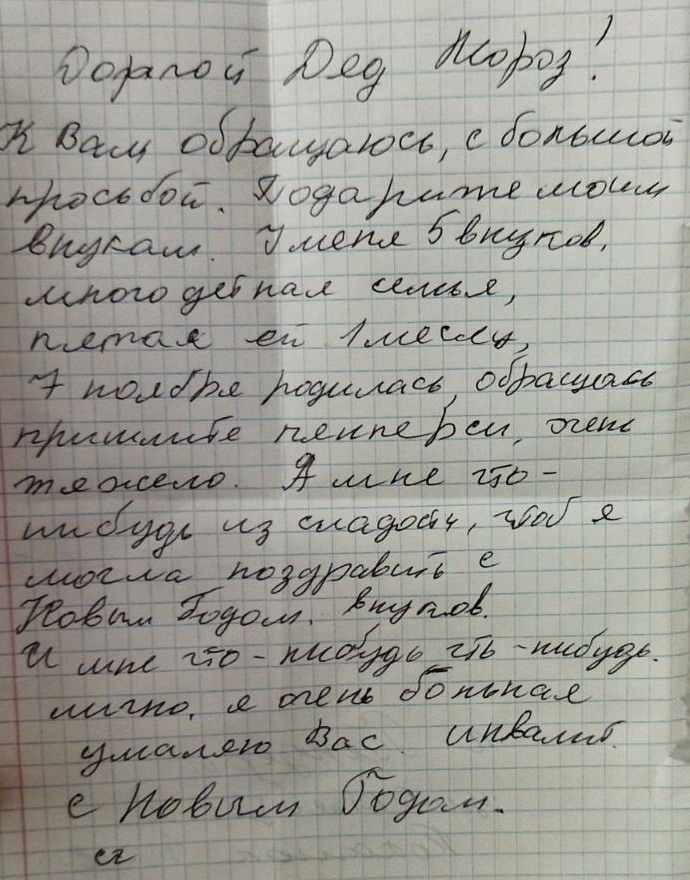 Дорагой Дед Мороз!
К Вам обращаюсь, с большой
просьбой. Подарите моим
внукам. У меня 5 внуков,
многодетная семья,
пятая ей 1 месяц,
7 ноября родилась, обращаюсь
пришлите пемперсы, очень
тяжело. А мне что-
нибудь из сладости, чтоб я
могла поздравить с
Новым Годом. внуков.
И мне что-нибудь что-нибудь.
лично. я очень больная
умаляю Вас. инвалит.
с Новым Годом.